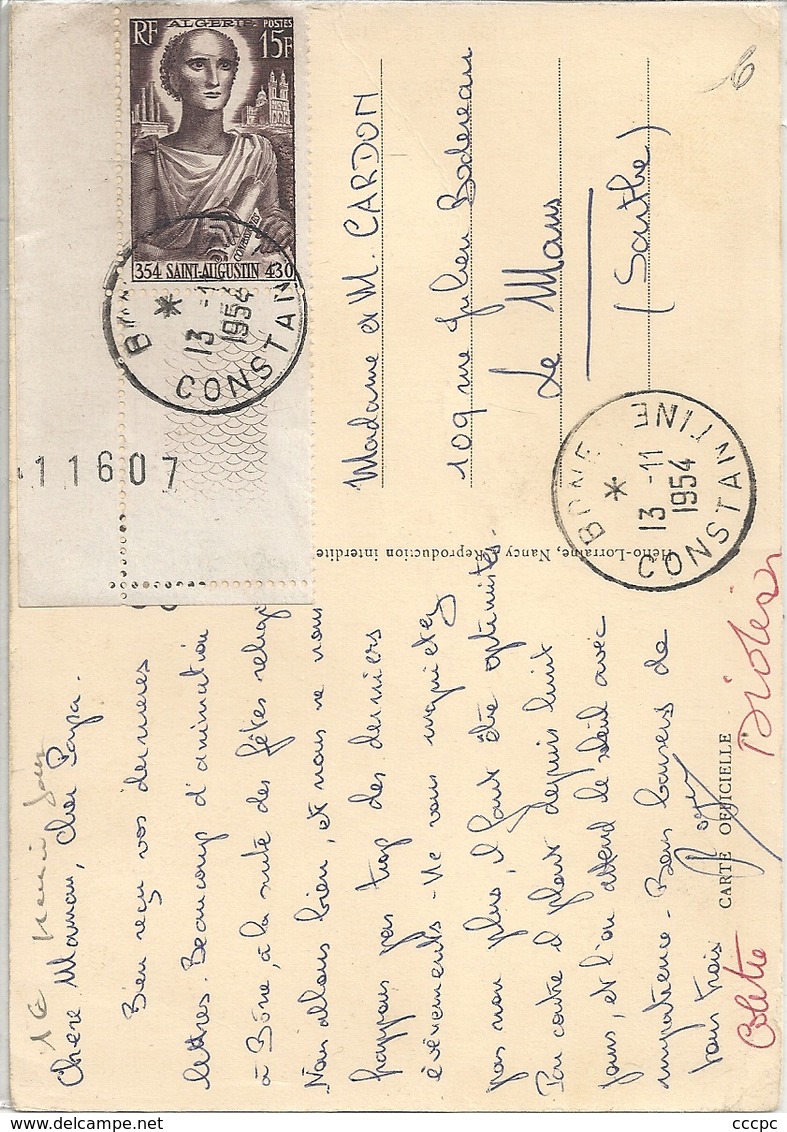 1er jour
Chère Maman, Cher Papa.
Bien reçu vos dernières
lettres. Beaucoup d'animation
à Bône, à la suite des fêtes relig
Nous allons bien, et nous ne nous
frappons pas trop des derniers
évènements - Ne vous inquiétez
pas non plus, il faut être optimistes.
Par contre il pleut depuis huit
jours, et l'on attend le soleil avec
impatience - Bons baisers de
tous trois
Roger
Colette
CARTE OFFICIELLE
Hélio-Lorraine, Nancy Reproduction interdite
ALGERIE
RF
POSTES
15F
354 SAINT-AUGUSTIN 430
BONE
13 -11
1954
CONSTAN
11607
Madame et M. CARDON
109 rue Julien Bodereau
Le Mans
(Sarthe)
BONE
13 -11
1954
CONSTANTINE
cccpc